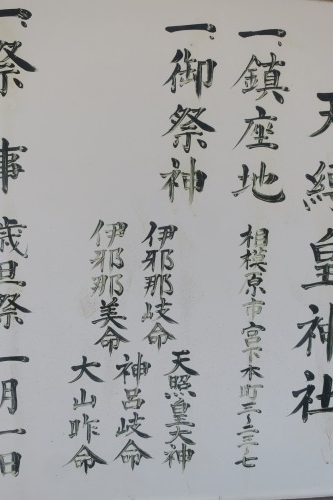 天縛皇神社
一、鎮座地 相模原市宮下本町三ー二三ー七
一、御祭神
伊邪那岐命 天照皇大神
伊邪那美命 神呂岐命
大山咋命
一、祭事 歳旦祭 一月一日